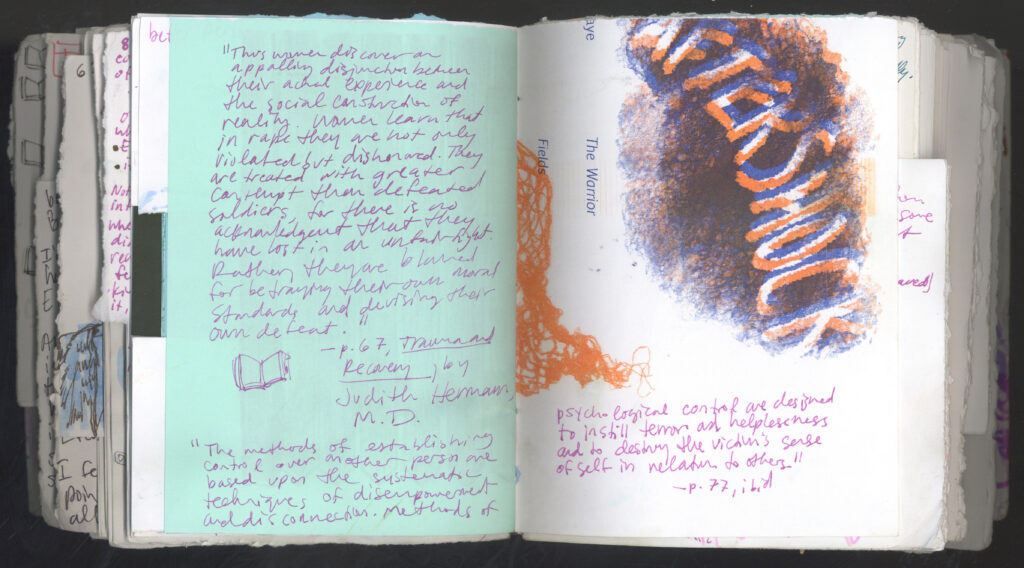 bet
"Thus women discover an
appalling disjunction between
their actual experience and
the social construction of
reality. Women learn that
in rape they are not only
violated but dishonored. They
are treated with greater
contempt than defeated
soldiers, for there is no
acknowledgment that they
have lost in an unfair fight.
Rather, they are blamed
for betraying their own moral
standards and devising their
own defeat."
—p. 67, Trauma and
Recovery, by
Judith Herman,
M.D.
"The methods of establishing
control over another person are
based upon the systematic
techniques of disempowerment
and disconnection. Methods of
aye
The Warrior
Fields
psychological control are designed
to instill terror and helplessness
and to destroy the victim's sense
of self in relation to others."
—p. 77, ibid